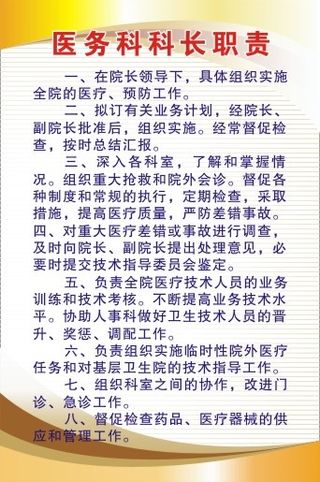 医务科科长职责
一、在院长领导下，具体组织实施
全院的医疗、预防工作。
二、拟订有关业务计划，经院长、
副院长批准后，组织实施。经常督促检
查，按时总结汇报。
三、深入各科室，了解和掌握情
况。组织重大抢救和院外会诊。督促各
种制度和常规的执行，定期检查，采取
措施，提高医疗质量，严防差错事故。
四、对重大医疗差错或事故进行调查，
及时向院长、副院长提出处理意见，必
要时提交技术指导委员会鉴定。
五、负责全院医疗技术人员的业务
训练和技术考核。不断提高业务技术水
平。协助人事科做好卫生技术人员的晋
升、奖惩、调配工作。
六、负责组织实施临时性院外医疗
任务和对基层卫生院的技术指导工作。
七、组织科室之间的协作，改进门
诊、急诊工作。
八、督促检查药品、医疗器械的供
应和管理工作。